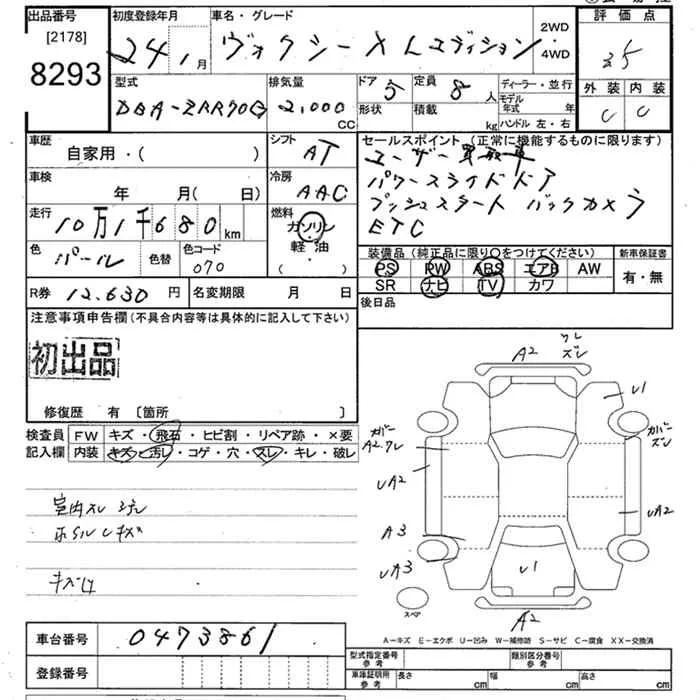 出品番号 初度登録年月 車名・グレード 2WD・4WD 評価点
[2178]
8293
24 1月 ヴォクシー X Lエディション
35
型式 排気量 ドア 定員 ディーラー・並行
DBA-ZRR70G 2,000 CC 5 8人 モデル年式 年
形状 積載 kg ハンドル 左・右
外装 内装
C C
車歴 シフト セールスポイント (正常に機能するものに限ります)
自家用・( ) AT
ユーザー買取車
車検 冷房
年 月( 日) AAC
パワースライドドア
プッシュスタート バックカメラ
ETC
走行 燃料
10万1千680km ガソリン
軽・油
( )
色 色替 色コード
パール 070
装備品 (純正品に限り○をつけてください) 新車保証書
PS PW ABS エアB AW 有・無
SR ナビ TV カワ
R券 12.630円 名変期限 月 日 後日品
注意事項申告欄(不具合内容等は具体的に記入して下さい)
初出品
修復歴 有 〔箇所 〕
検査員 FW キズ・飛石・ヒビ割・リペア跡・×要
記入欄 内装 キズ・汚レ・コゲ・穴・スレ・キレ・破レ
A2 ズレ
U1
カバー
A2.ワレ
カバー
ズレ
UA2
UA2
A3
UA3
U1
A2
スペア
A-キズ E-エクボ U-凹み W-補修跡 S-サビ C-腐食 XX-交換済
車台番号 0473861
登録番号
型式指定番号 参考 類別区分番号 参考
車庫証明用 参考 長さ cm 幅 cm 高さ cm